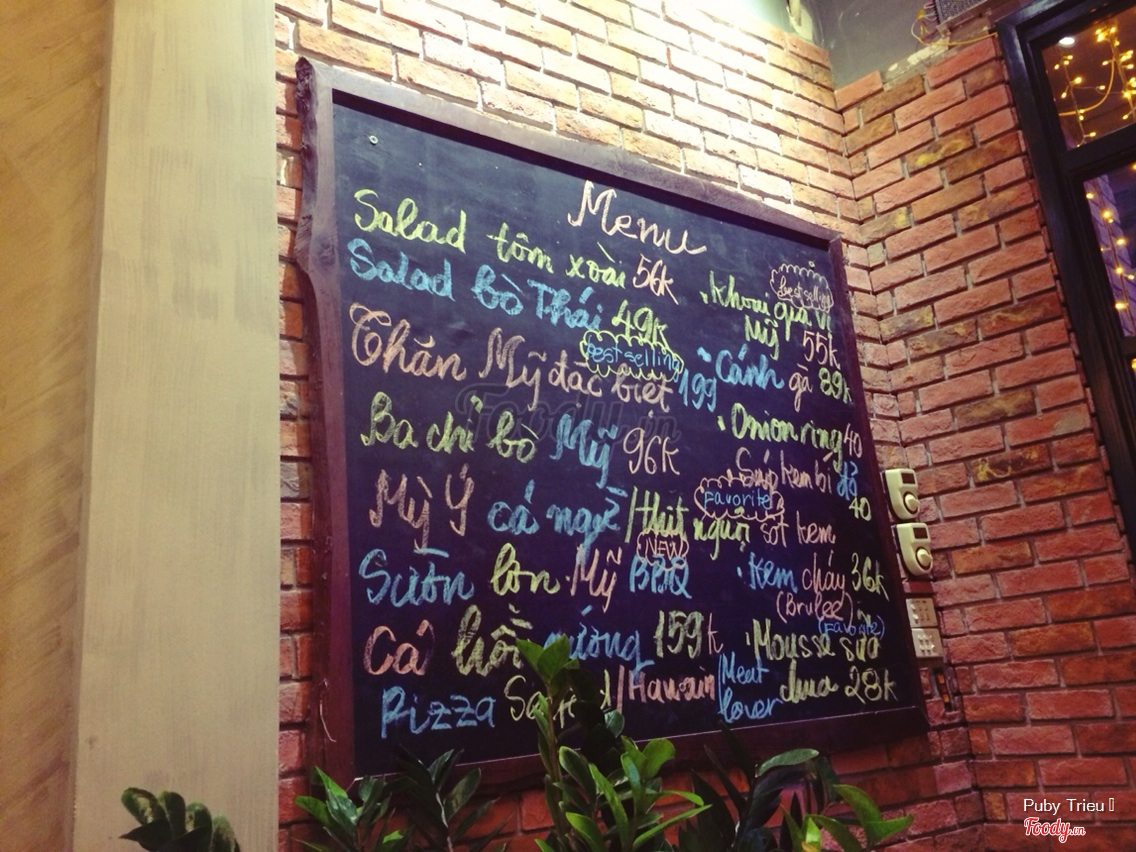 Menu
Salad tôm xoài 56k
Salad bò Thái 49k
best selling
Thăn Mỹ đặc biệt 199
Ba chỉ bò Mỹ 96k
Mỳ Ý cá ngừ / thịt nguội sốt kem
Favorite
NEW
Sườn lợn Mỹ BBQ
Cá hồi nướng 159k
Pizza / Hawain / Meat lover
best selling
Khoai gia vị
Mỹ 55k
Cánh gà 89k
Onion ring 40
Súp kem bí đỏ
40
Kem cháy 36k
(Brulee)
(Favorite)
Mousse sữa
chua 28k
Foody.vn
Puby Trieu
Foody.vn